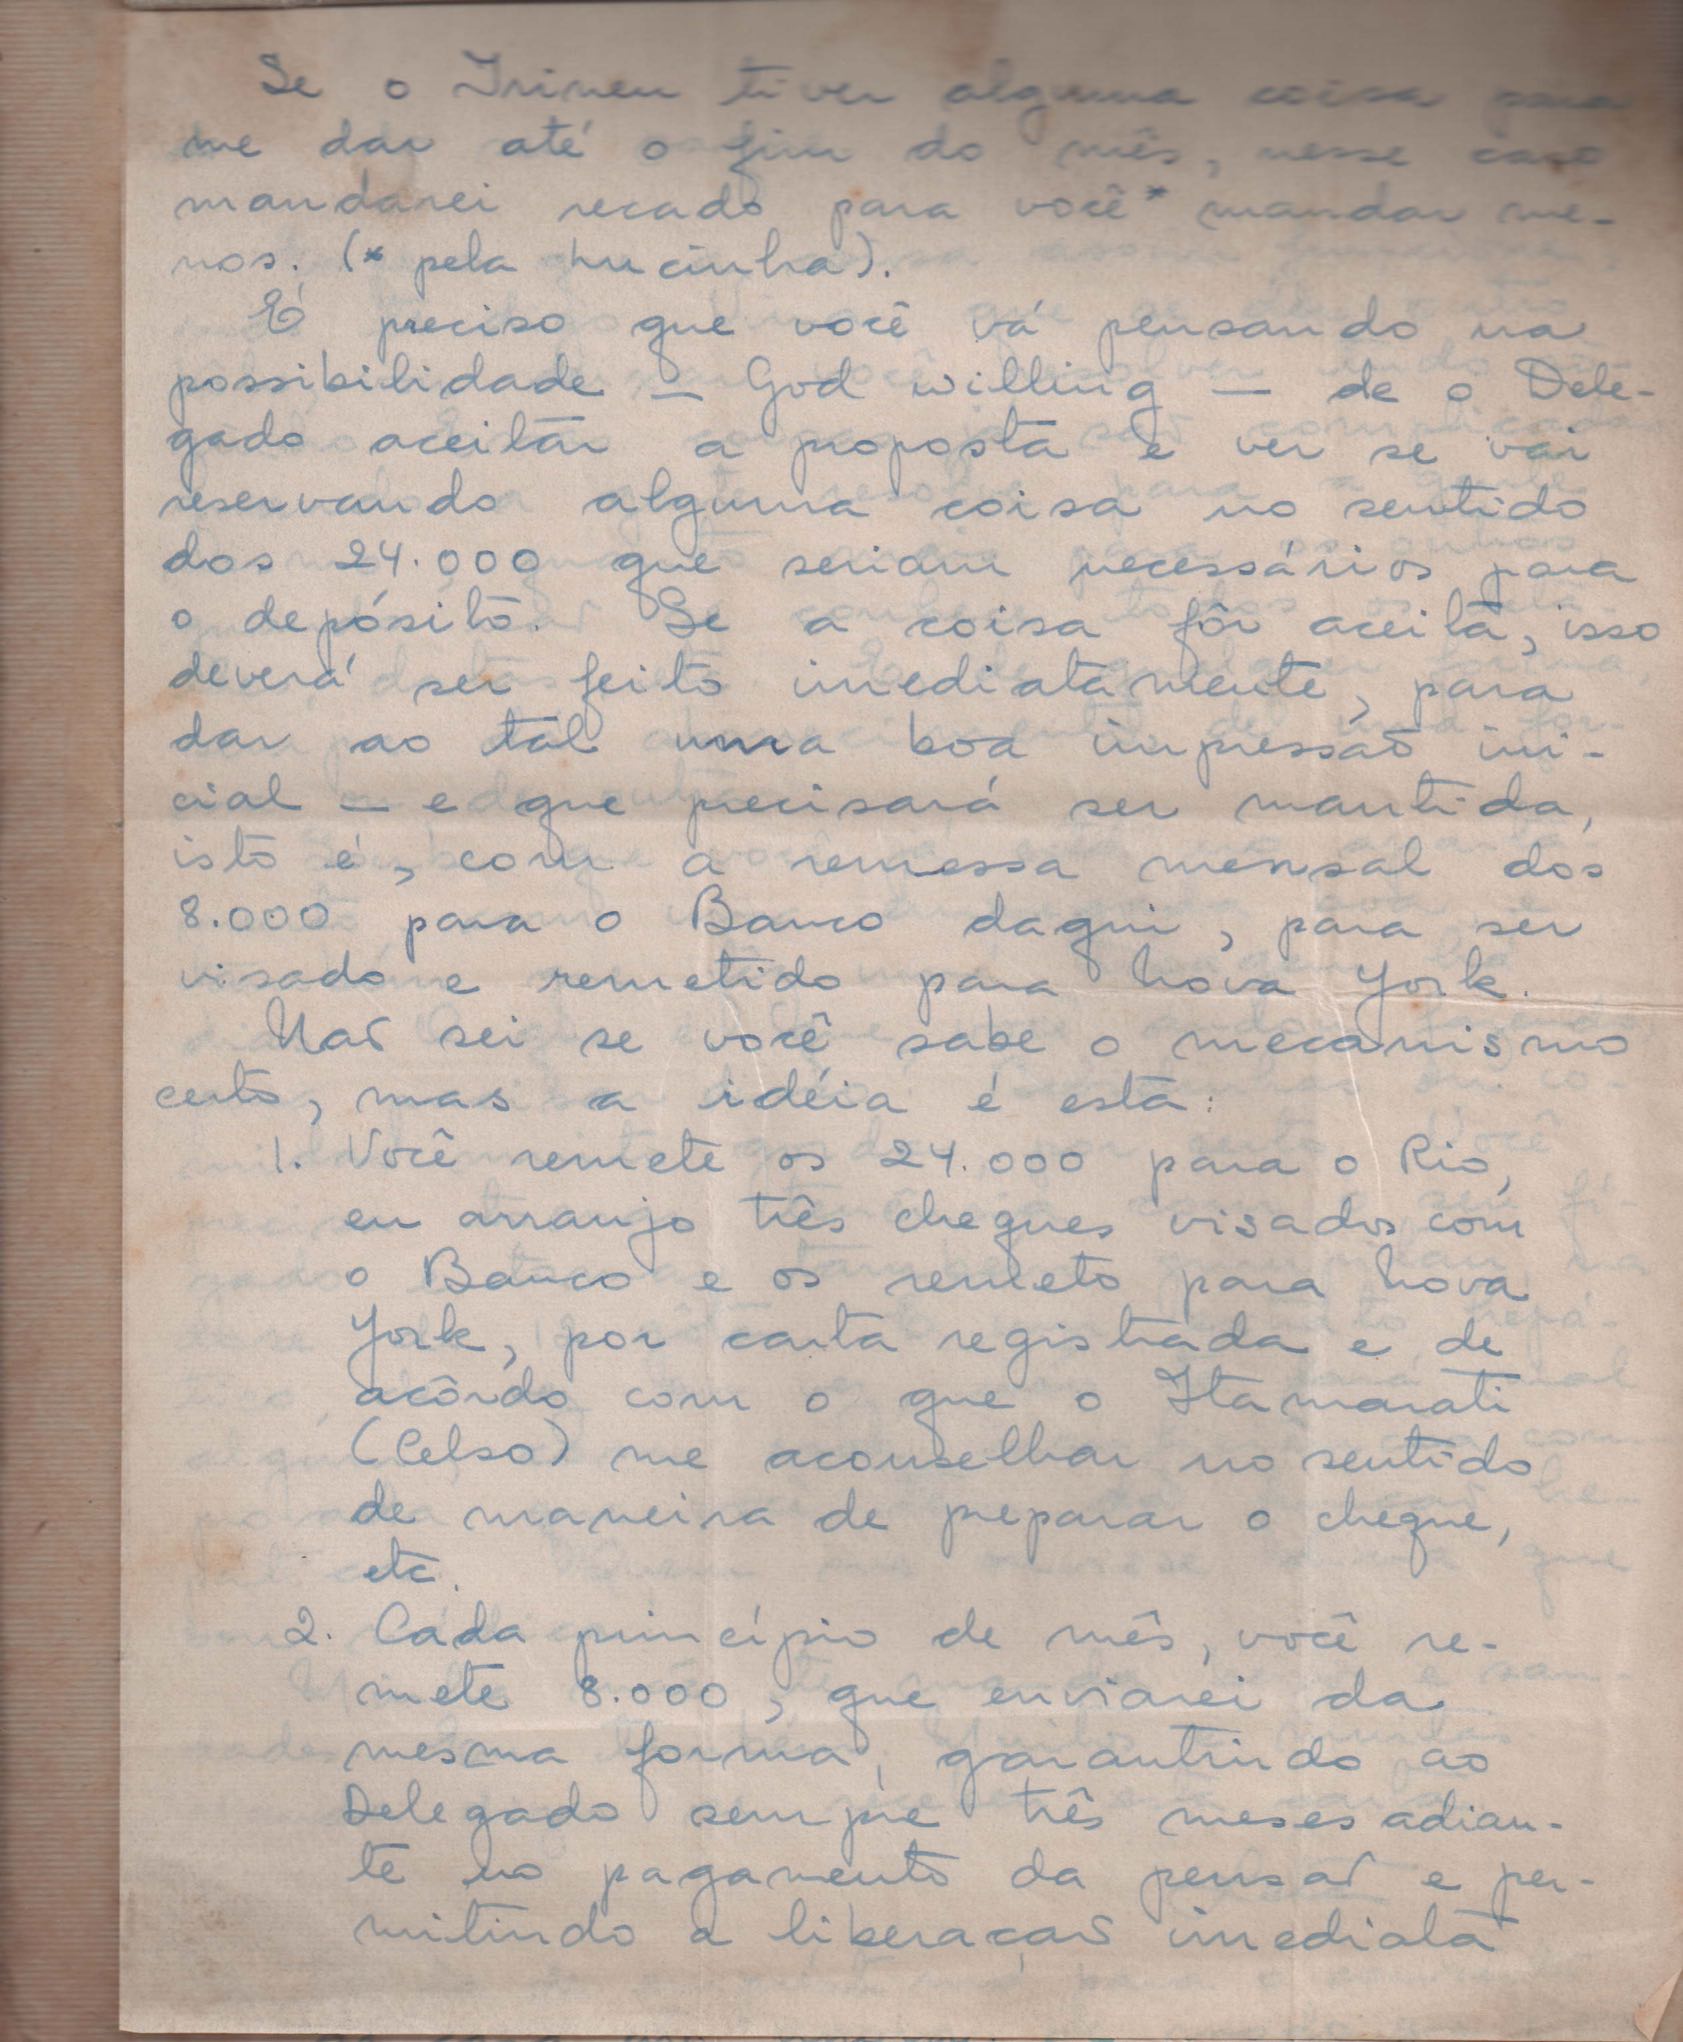 Se o Irineu tiver alguma coisa para
me dar até o fim do mês, nesse caso
mandarei recado para você* mandar me-
nos. (* pela Lucinha).
É preciso que você vá pensando na
possibilidade — God willing — de o Dele-
gado aceitar a proposta e ver se vai
reservando alguma coisa no sentido
dos 24.000 que seriam necessários para
o depósito. Se a coisa fôr aceita, isso
deverá ser feito imediatamente, para
dar ao tal uma boa impressão ini-
cial — e que precisará ser mantida,
isto é, com a remessa mensal dos
8.000 para o Banco daqui, para ser
visado e remetido para Nova York.
Não sei se você sabe o mecanismo
certo, mas a idéia é esta:
1. Você remete os 24.000 para o Rio,
eu arranjo três cheques visados com
o Banco e os remeto para Nova
York, por carta registrada e de
acôrdo com o que o Itamarati
(Celso) me aconselhar no sentido
de maneira de preparar o cheque,
etc.
2. Cada princípio de mês, você re-
mete 8.000, que enviarei da
mesma forma, garantindo ao
Delegado sempre três meses adian-
te no pagamento da pensão e per-
mitindo a liberação imediata